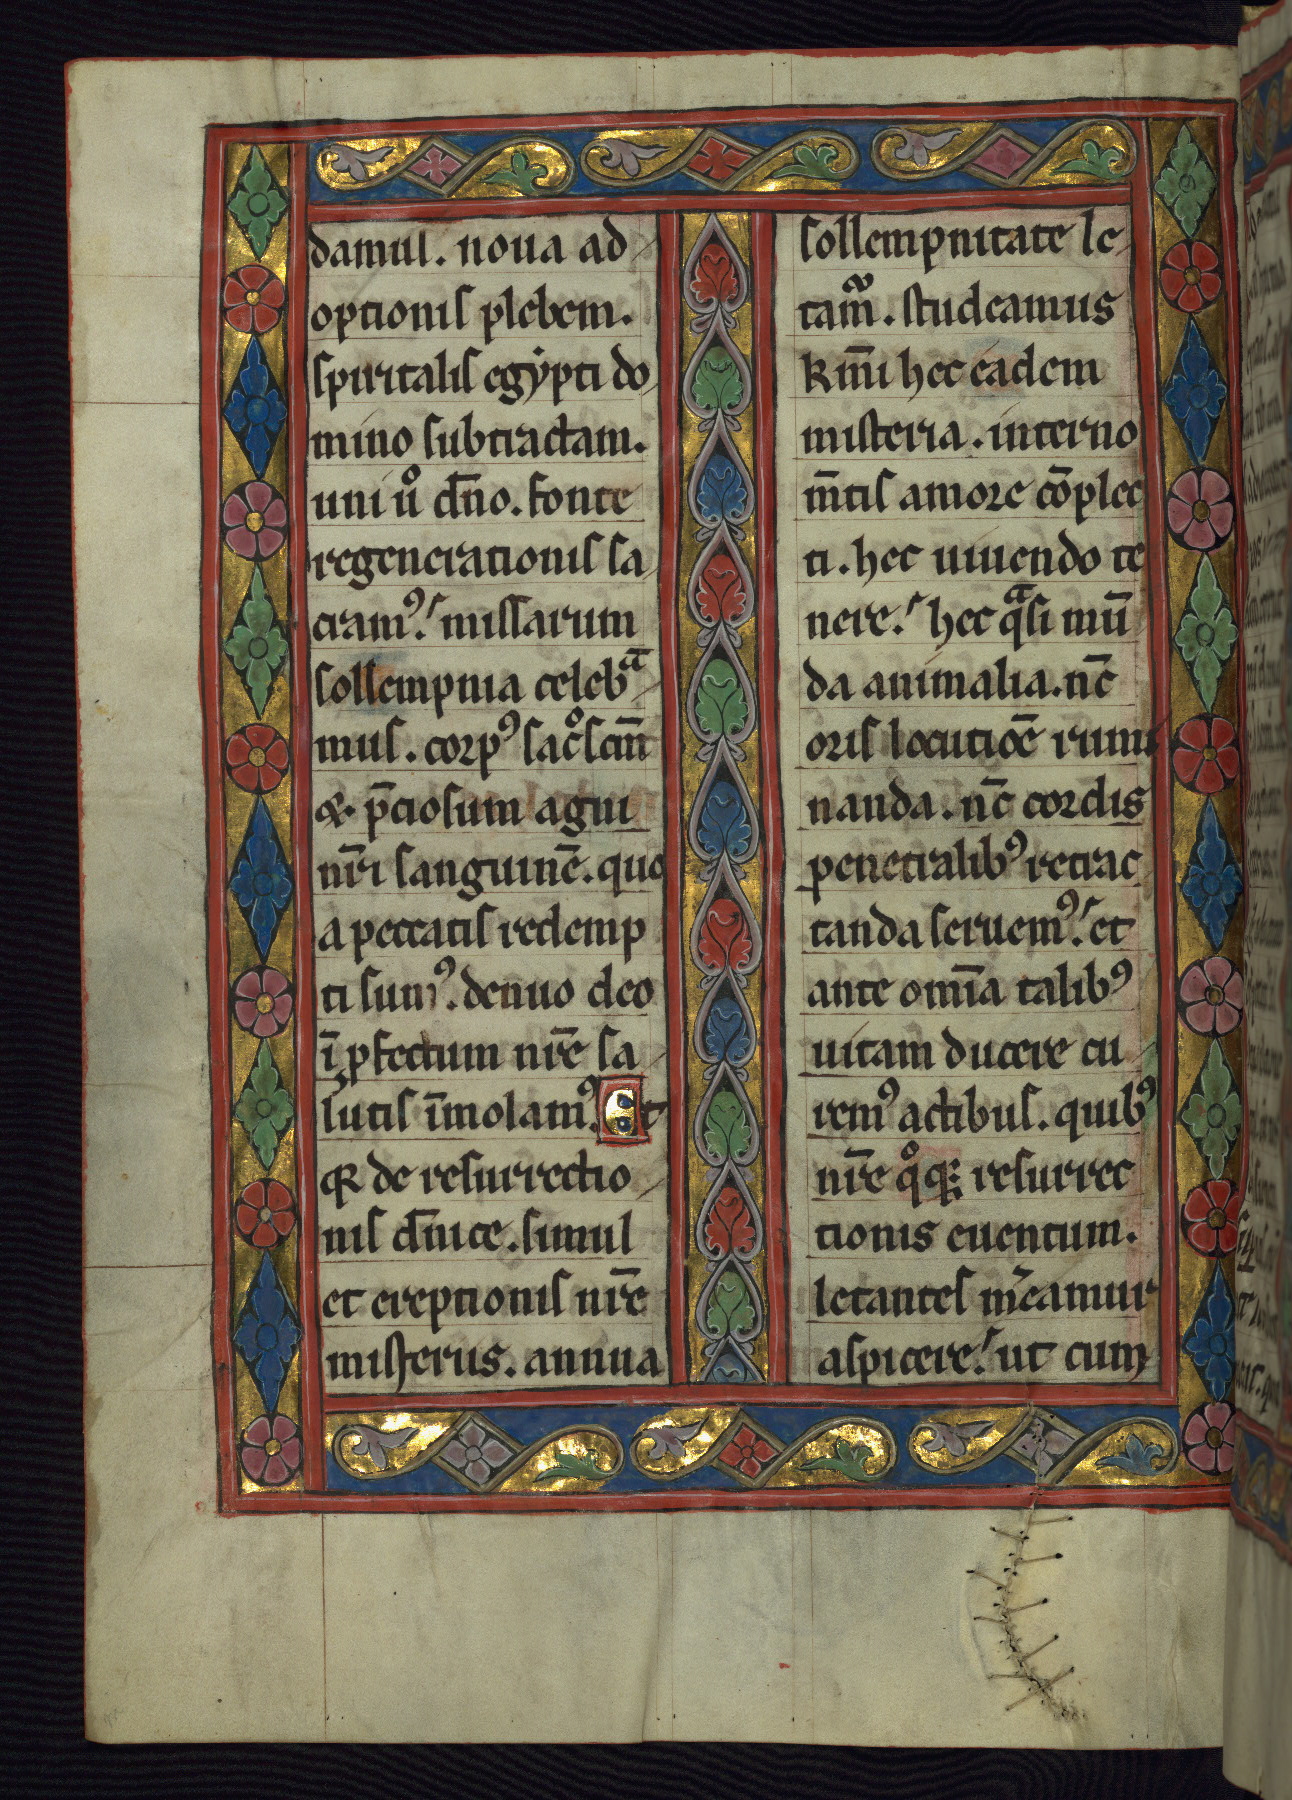 damus. noua ad
optionis plebem.
spiritalis egẏpti do
mino subtractam.
uni uͦ dn̄o. fonte
regenerationis sa
cramꝰ. missarum
sollempnia celebᵃ
mus. corpꝰ sac̊scm̄
& p̄ciosum agni
nr̄i sanguinē. quo
a peccatis redemp
ti sumꝰ. denuo deo
ī ꝓfectum nr̄e sa
lutis īmolamꝰ. Et
qr de resurrectio
nis dn̄ice. simul
et ereptionis nr̄e
misteriis. annua
sollempnitate le
tam᷑. studeamus
kr̄mi hec eadem
misteria. interno
m̄tis amore cōplec
ti. hec uiuendo te
nere. hec qᵃsi mū
da animalia. nc̄
oris locutiōe rumi
nanda. nc̄ cordis
penetralibꝰ retrac
tanda seruemꝰ. et
ante om̄ia talibꝰ
uitam ducere cu
remꝰ actibus. quibꝰ
nr̄e qͦq; resurrec
tionis euentum.
letantes m̄eamur
aspicere. ut cum